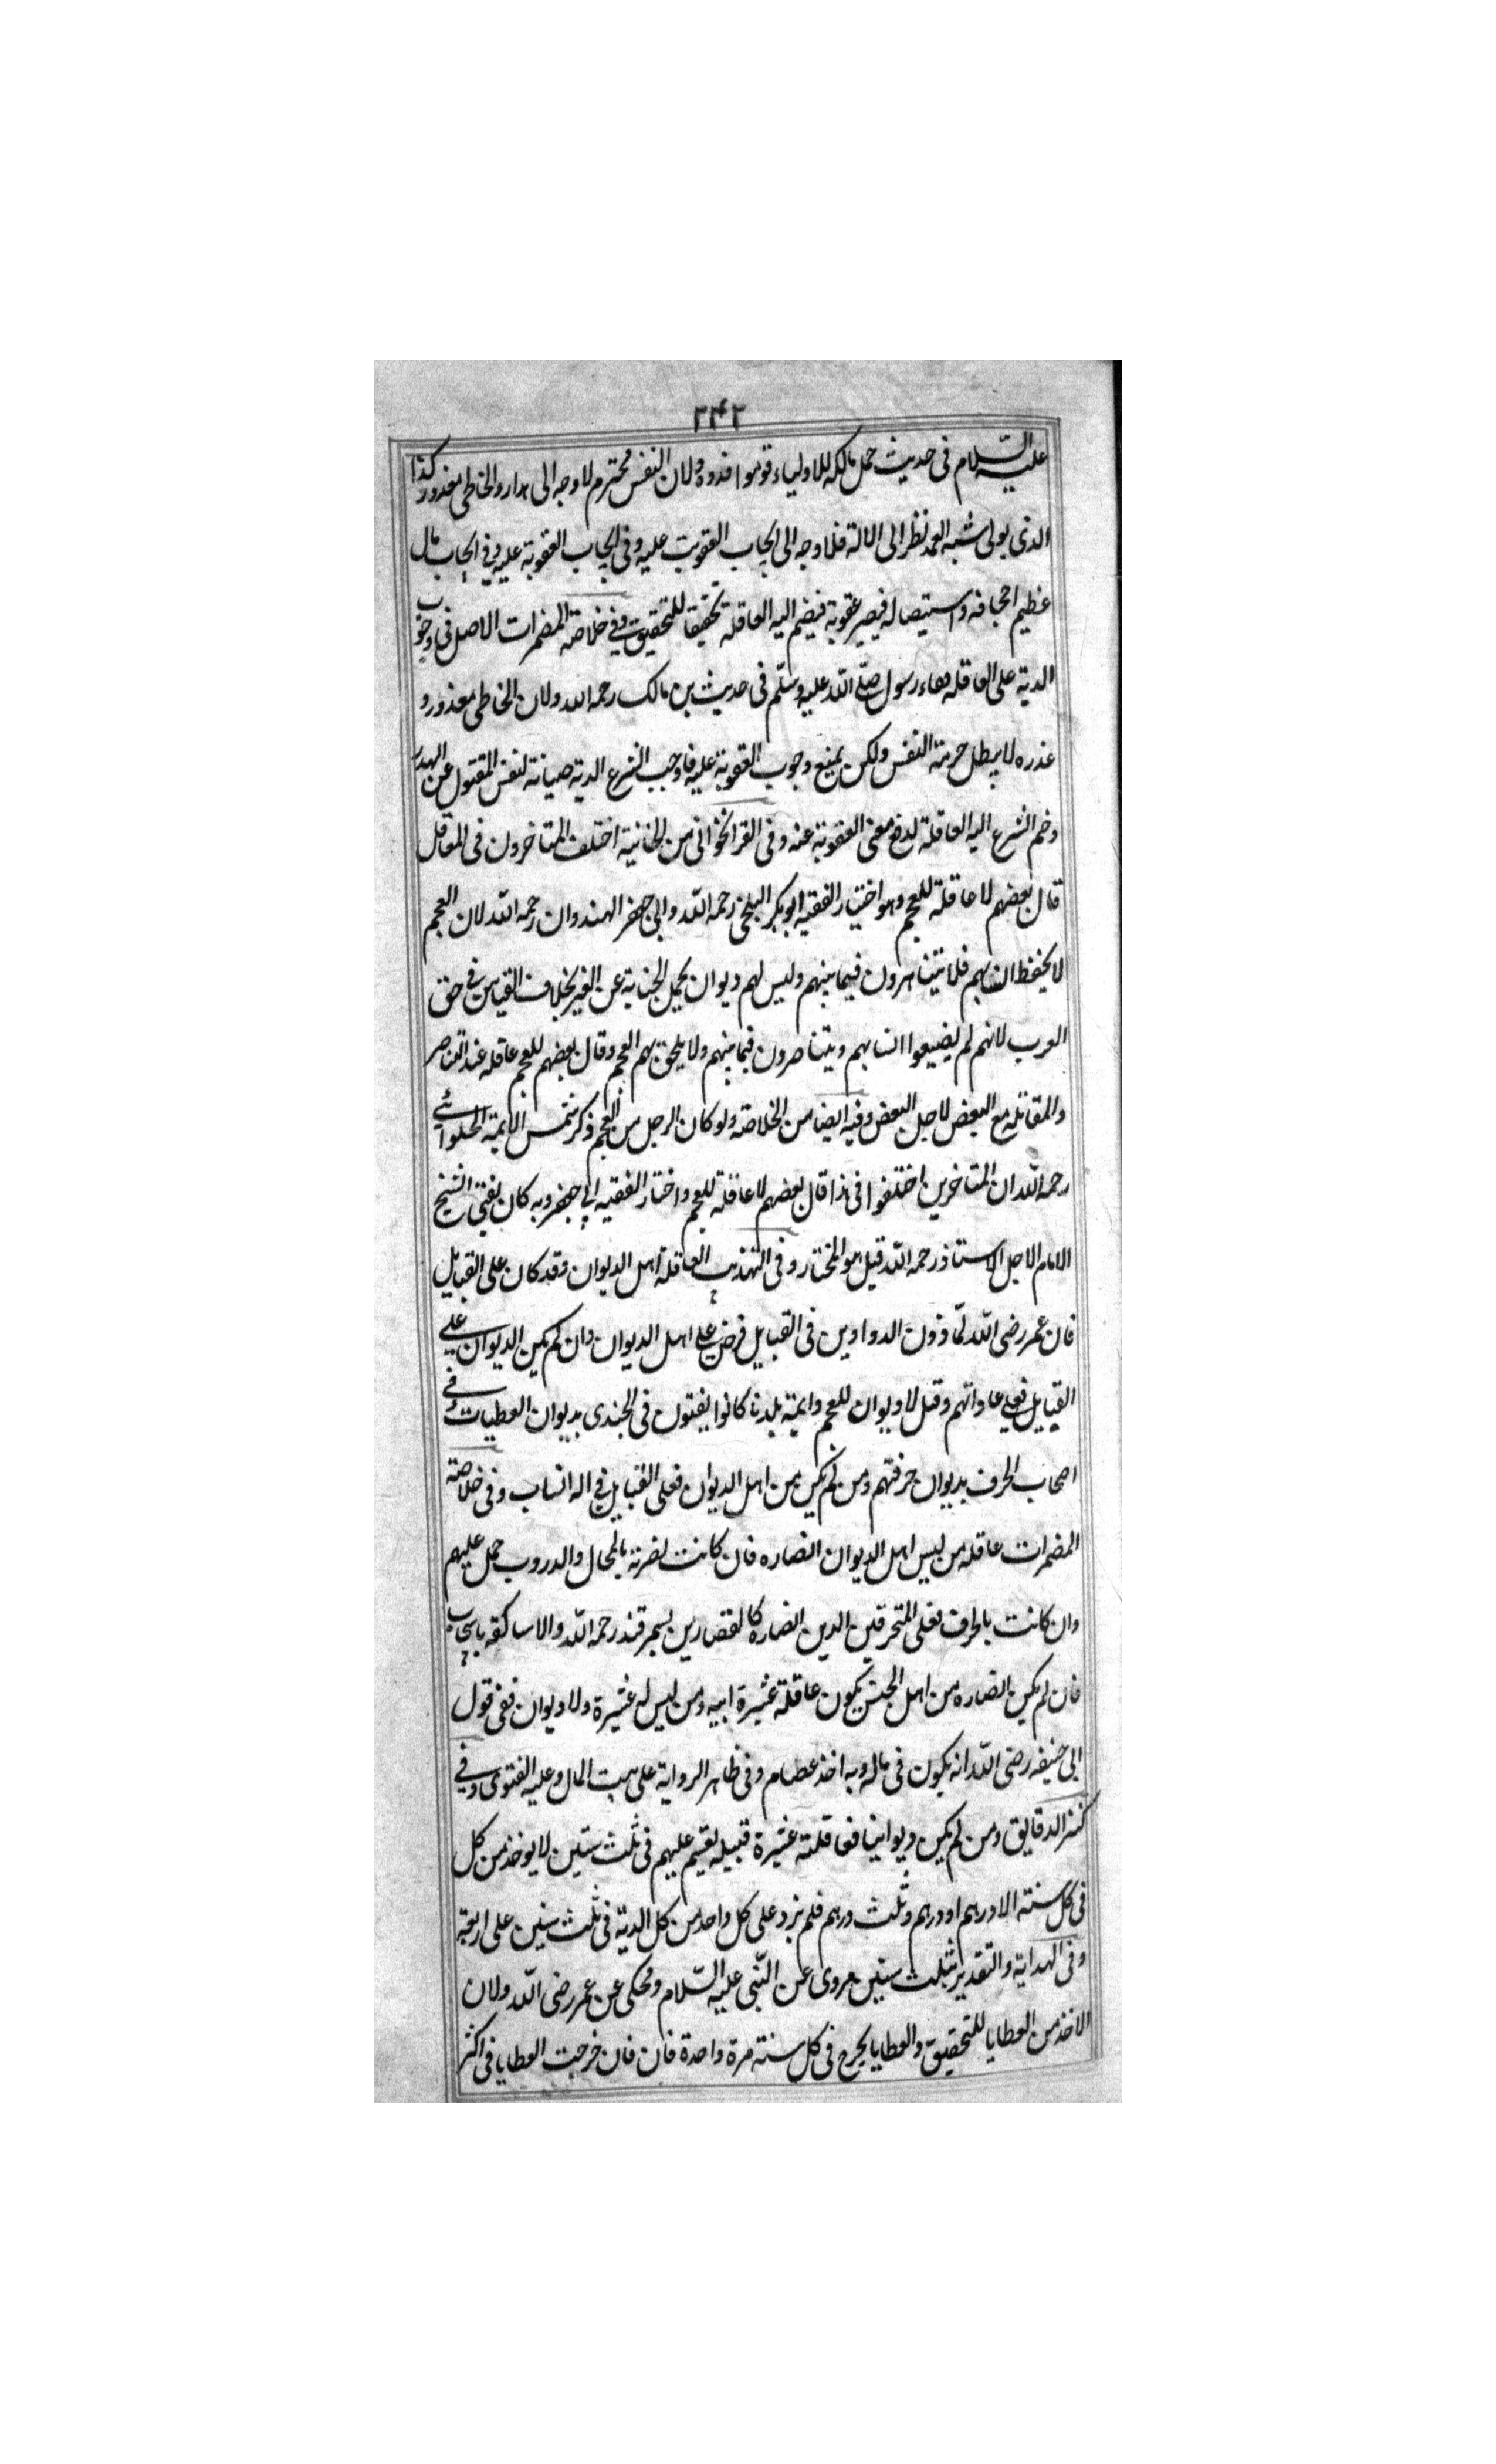 ٢٤٢
عليه السلام في حديث حمل مالكه للاولياء قوموا فدوه ولان النفس محترم لا وجه الى هدار والخاطى معذور كذا
الذى يولى شبه العمد نظر الى الالة فلا وجه الى ايجاب العقوبت عليه وفى ايجاب العقوبة عليه وفي ايجاب مال
عظيم احجافه واستيصاله فيصير عقوبة فيضم اليه العاقلة تحقيقا للتحقيق وفي خلاصة المضمرات الاصل فى وجوب
الدية على العاقله رسول صلى الله عليه وسلم فى حديث بن مالك رحمه الله ولان الخاطى معذور و
عذره لا يبطل حرمة النفس ولكن يمنع وجوب العقوبة عليه فاوجب الشرع الدية صيانة لنفس المقتول عن الهدر
وضم الشرع اليه العاقلة لدفع معنى العقوبة عنه وفى القراخوانى من الخانية اختلف المتاخرون فى المعاقل
قال بعضهم لا عاقلة للعجم وهو اختيار الفقيه ابو بكر البلخى رحمه الله وابى جعفر الهندوان رحمه الله لان العجم
لا يحفظ انسابهم فلا يتناصرون فيما بينهم وليس لهم ديوان يحمل الجناية عن الغير بخلاف القياس في حق
العرب لانهم لم يضيعوا انسابهم ويتناصرون فيما بينهم ولا يلحق بهم العجم وقال بعضهم للعجم عاقله عند التناصر
والمقاتله مع البعض لاجل البعض وفيه ايضا من الخلاصة ولو كان الرجل من العجم ذكر شمس الايمة الحلوائي
رحمه الله ان المتاخرين اختلفوا فى هذا قال بعضهم لا عاقلة للعجم واختار الفقيه ابى جعفر وبه كان يفتى الشيخ
الامام الاجل الاستاذ رحمه الله قيل هو المختار وفى التهذيب العاقلة اهل الديوان وقد كان على القبايل
فان عمر رضى الله لما دون الدواوين فى القبايل فرض على اهل الديوان وان لم يكن الديوان على
القبايل فعلى عاداتهم وقيل لا ديوان للعجم وايمة بلدنا كانوا يفتون فى الجندى بديوان العطيات في
اصحاب الحرف بديوان حرفتهم ومن لم يكن من اهل الديوان فعلى القبايل في اله انساب وفى خلاصة
المضمرات عاقله من ليس اهل الديوان انصاره فان كانت نصرته بالمحال والدروب حمل عليهم
وان كانت بالحرف فعلى المتحرفين الدين انصاره كالقصارين بسمرقند رحمه الله والاساكفه
فان لم يكن انصاره من اهل الجنس يكون عاقلة عشيرة ابيه ومن ليس له عشيرة ولا ديوان ففى قول
ابى حنيفه رضى الله انه يكون فى ماله وبه اخذ عصام وفى ظاهر الرواية على بيت المال وعليه الفتوى وفي
كنز الدقايق ومن لم يكن ديوانيا فعاقلته عشيرة قبيله يقسم عليهم فى ثلث سنين لا يوخذ من كل
فى كل سنة الا درهم او درهم وثلث درهم فلم يزد على كل واحد من كل الدية فى ثلث سنين على اربعة
وفى الهداية والتقدير بثلث سنين مروى عن النبى عليه السلام ومحكى عن عمر رضى الله ولان
الاخذ من العطايا للتحقيق والعطايا يخرج فى كل سنة مرة واحدة فان فان خرجت العطايا فى اكثر